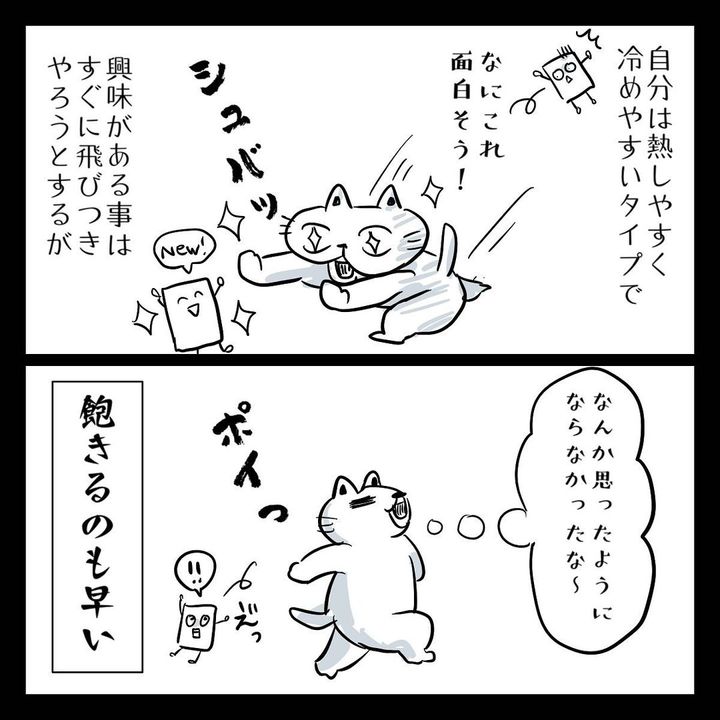 自分は熱しやすく
冷めやすいタイプで
なにこれ
面白そう！
シュバッ
New!
興味がある事は
すぐに飛びつき
やろうとするが
なんか思ったように
ならなかったな〜
ポイっ
!!
え゛っ
飽きるのも早い